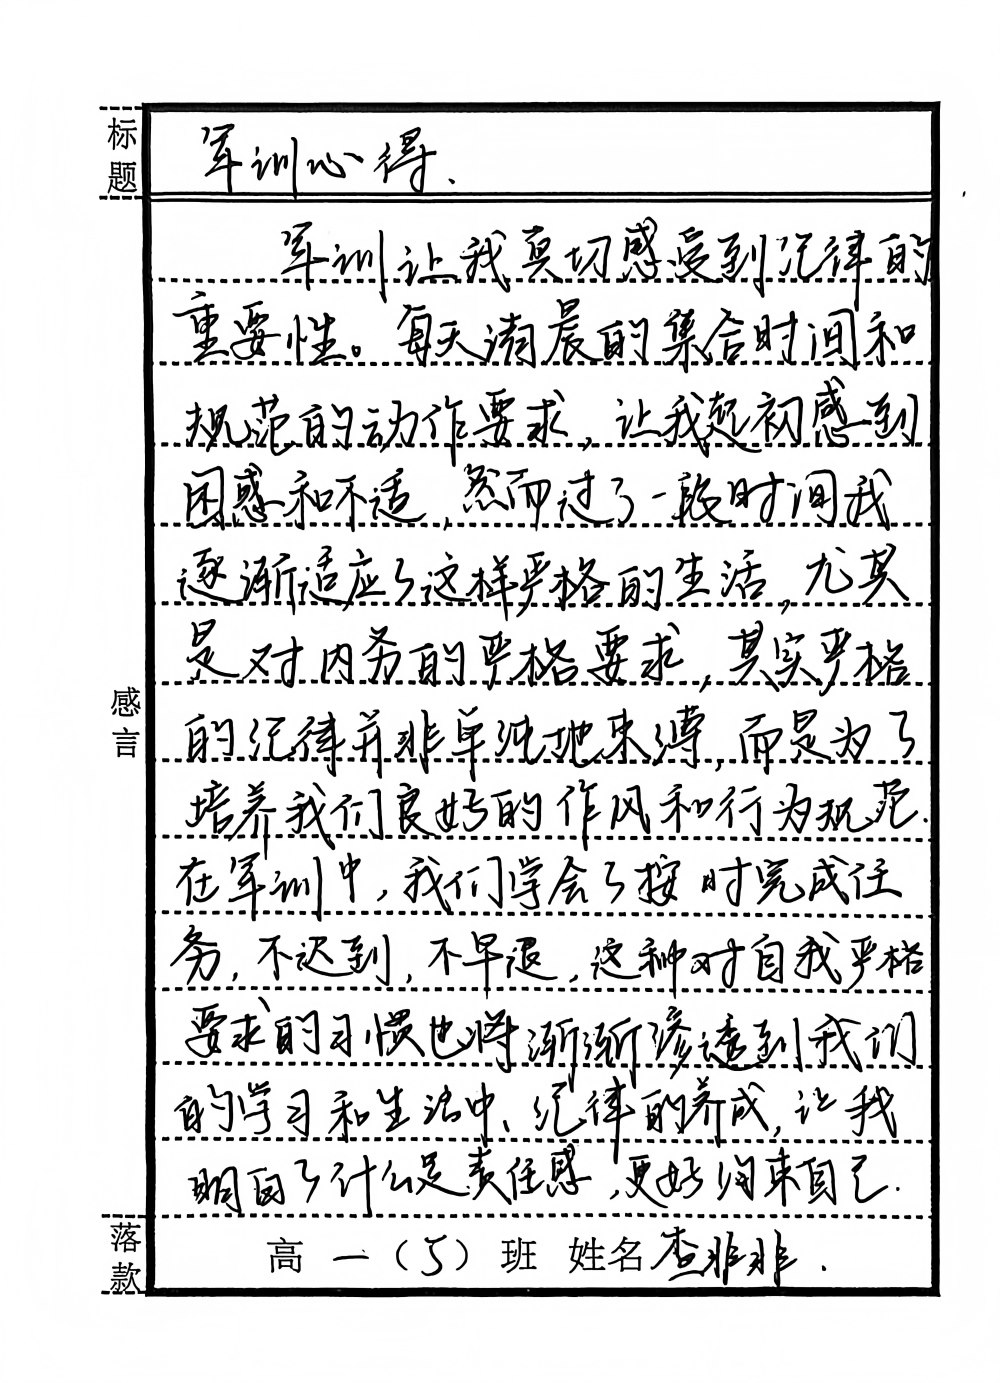 标题
军训心得.
军训让我真切感受到纪律的
重要性。每天清晨的集合时间和
规范的动作要求,让我起初感到
困惑和不适,然而过了一段时间我
逐渐适应了这样严格的生活,尤其
是对内务的严格要求,其实严格
的纪律并非单纯地束缚,而是为了
培养我们良好的作风和行为规范.
在军训中,我们学会了按时完成任
务,不迟到,不早退,这种对自我严格
要求的习惯也将渐渐渗透到我们
的学习和生活中、纪律的养成,让我
明白了什么是责任感,更好约束自己.
感言
落款
高一(5)班 姓名 查非非.